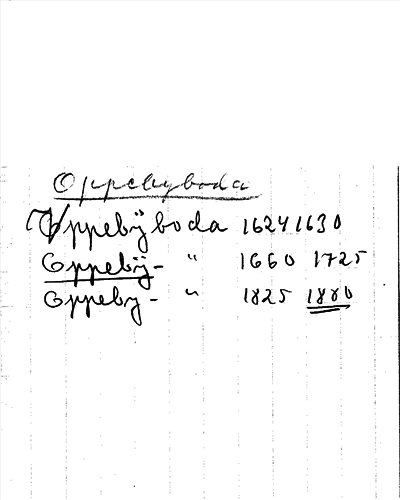 Oppebyboda
Vppebÿboda 1624 1630
Oppebÿ- " 1660 1725
Oppeby- " 1825 1880